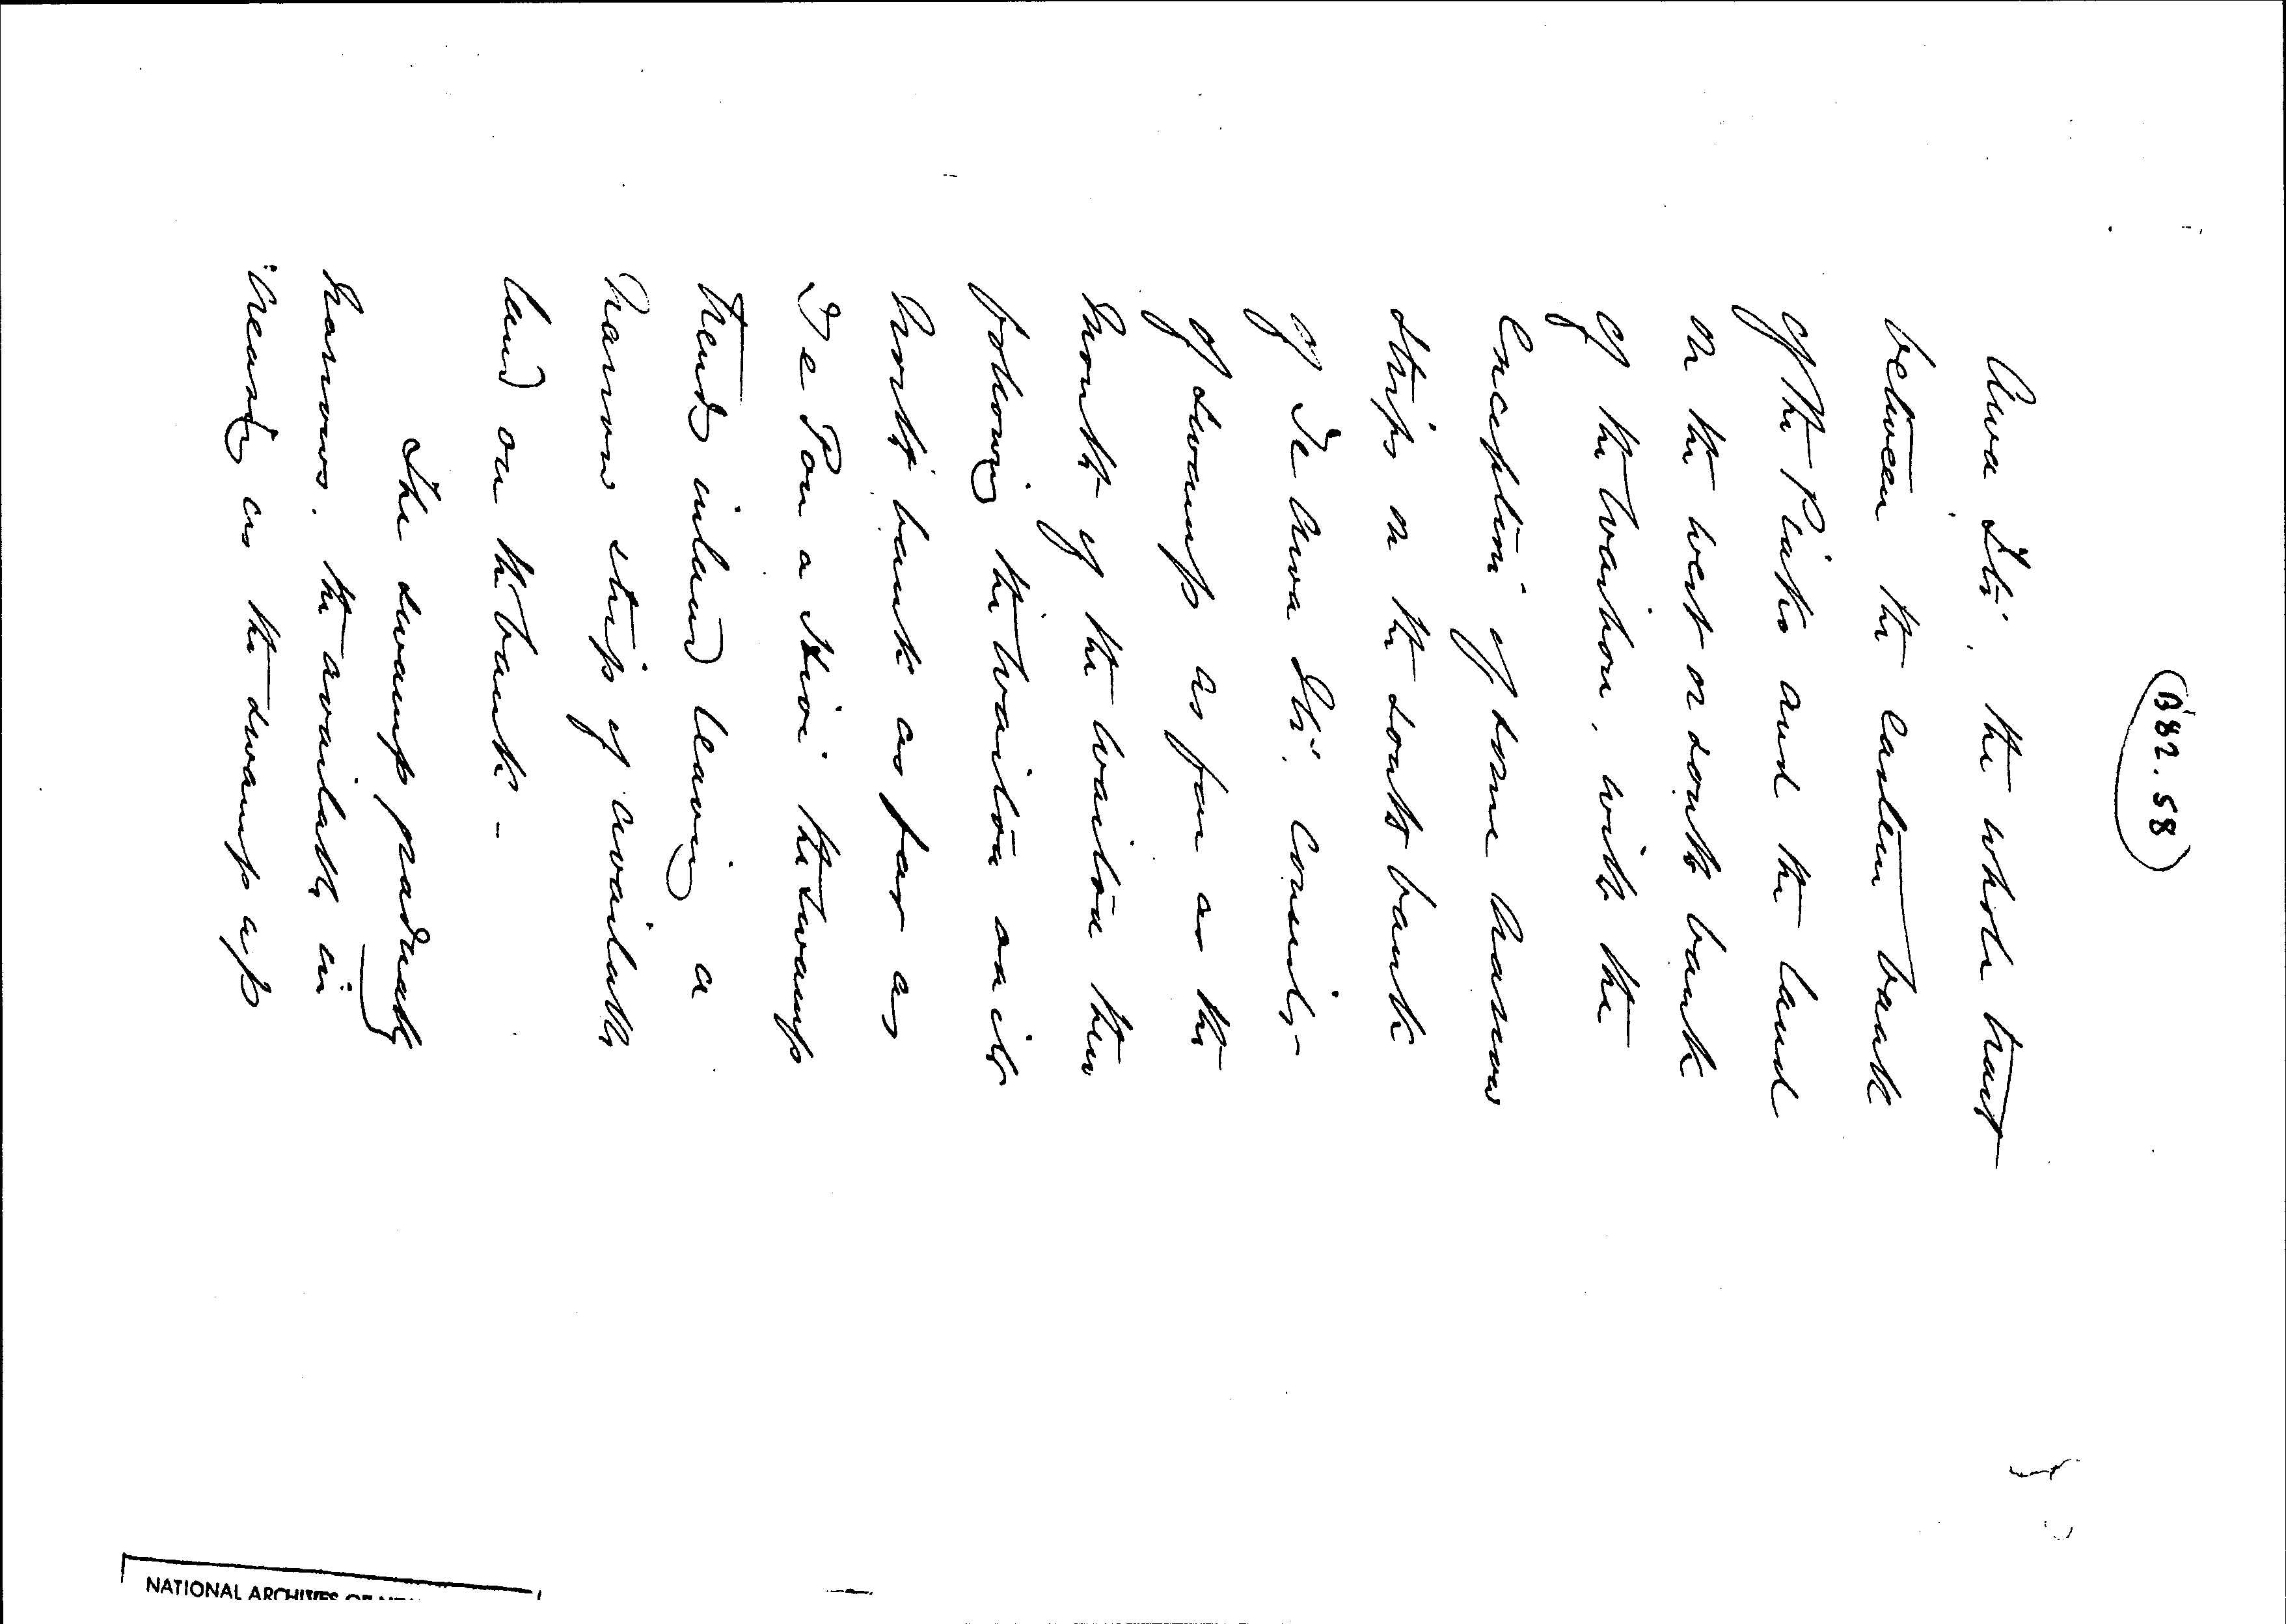 B82.58
Awa Iti, the whole tract
between the eastern bank
of the Piako and the land
on the west or south bank
of the Waihou, with the
Exception of some narrow
strips on the south bank
of Te Awa Iti, consists
of swamp as far as the
Mouth of the Waitoa then
following the Waitoa on its
North bank as far as
Te Pou a Kiwi the swamp
trends inland leaving a
Narrow strip of available
land on the bank -
The swamp gradually
Narrows, the available, in
increasing as the swamp up
NATIONAL ARCHIVES OF